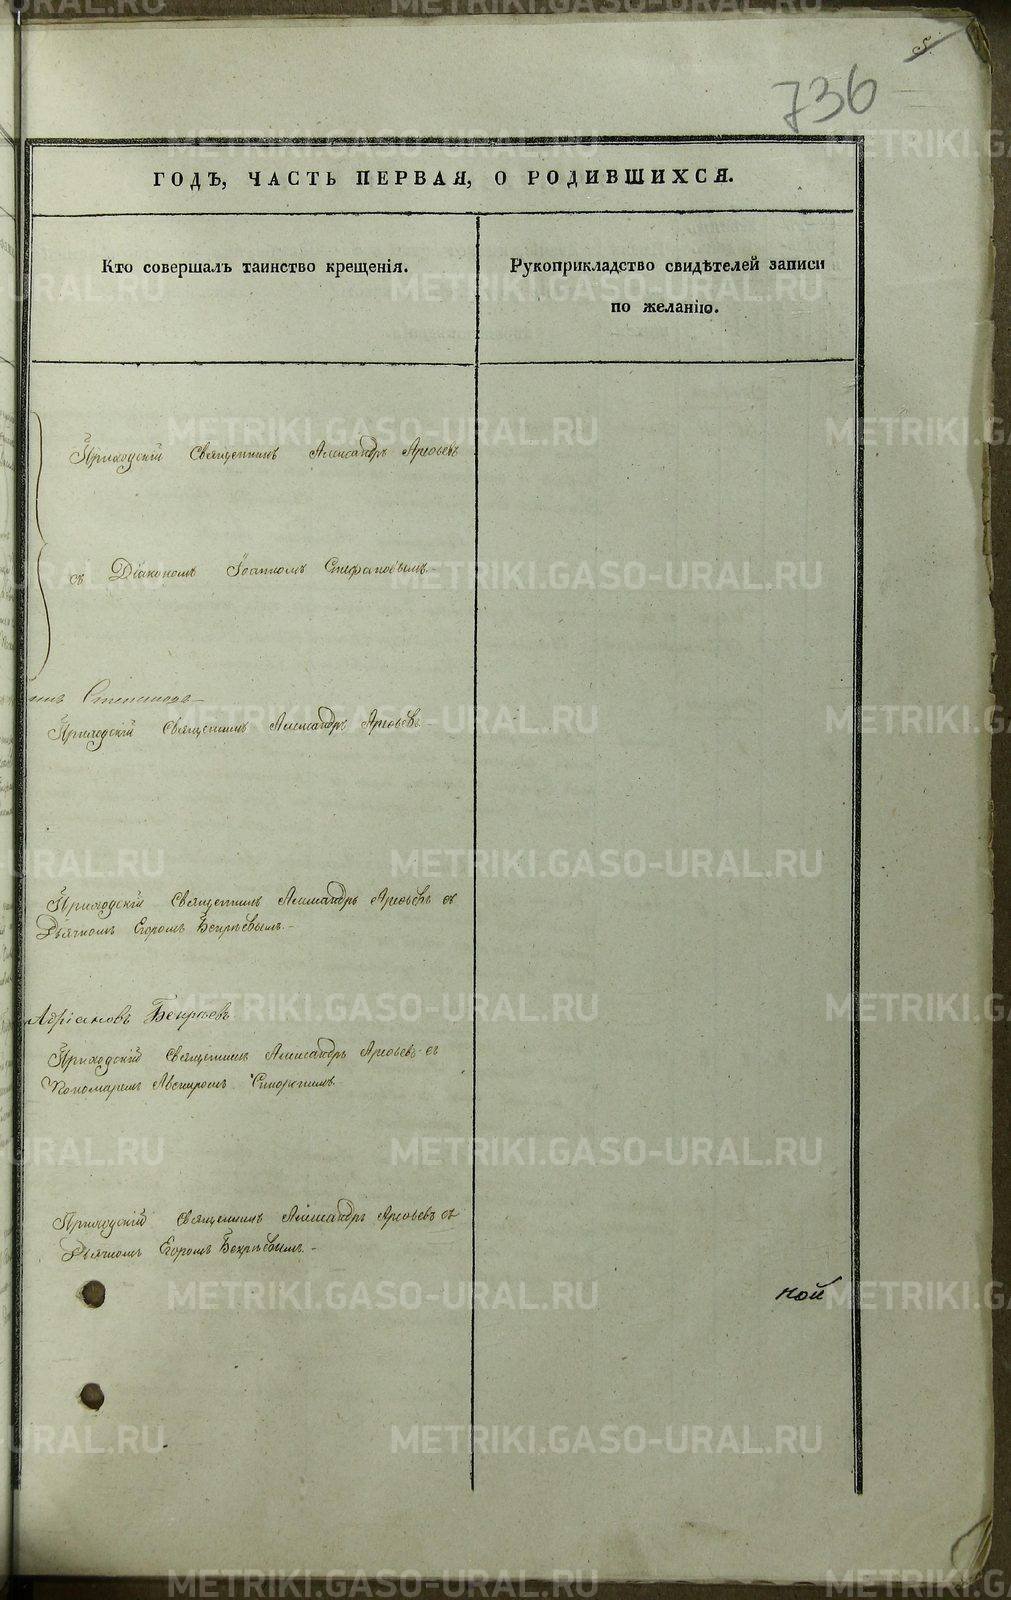 5.
736
ГОДЪ, ЧАСТЬ ПЕРВАЯ, О РОДИВШИХСЯ.
Кто совершалъ таинство крещенія.
Рукоприкладство свидѣтелей записи
по желанію.
Приходскій Священникъ Александръ Арефьевъ
съ Діакономъ Іоанномъ Стефановымъ.-
Приходскій Священникъ Александръ Арефьевъ.-
Приходскій Священникъ Александръ Арефьевъ съ
Дьячкомъ Егоромъ Бекрѣевымъ.-
Адріановъ Бекрѣевъ
Приходскій Священникъ Александръ Арефьевъ съ
Пономаремъ
Приходскій Священникъ Александръ Арефьевъ съ
Дьячкомъ Егоромъ Бекрѣевымъ.-
ной
METRIKI.GASO-URAL.RU